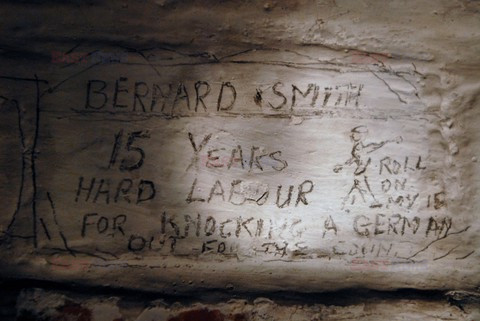 BERNARD SMITH
15 YEARS
HARD LABOUR
ROLL
ON
MY 15
FOR KNOCKING A GERMAN
OUT FOR THE COUNT